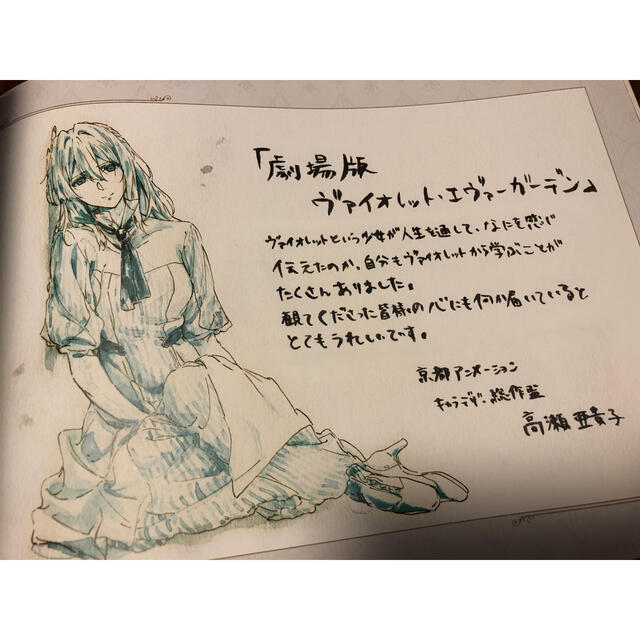 「劇場版
ヴァイオレット・エヴァーガーデン」
ヴァイオレットという少女が人生を通して、なにを感じ
伝えたのか、自分もヴァイオレットから学ぶことが
たくさんありました。
観てくださった皆様の心にも何か届いていると
とてもうれしいです。
京都アニメーション
キャラデザ・総作監
高瀬亜貴子